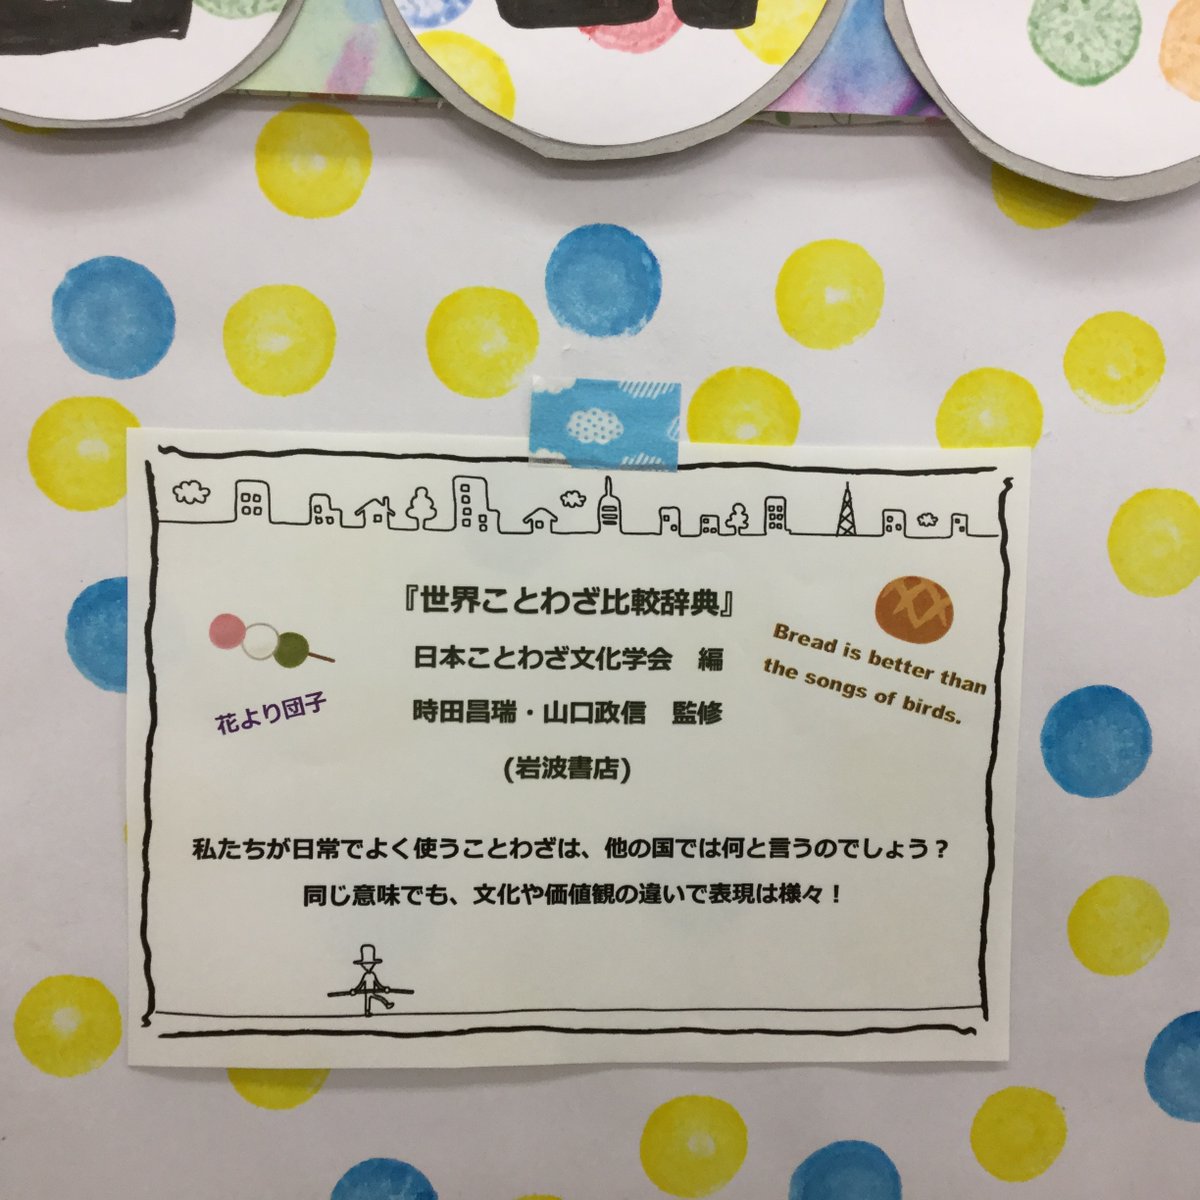 『世界ことわざ比較辞典』
日本ことわざ文化学会　編
時田昌瑞・山口政信　監修
(岩波書店)
花より団子
Bread is better than
the songs of birds.
私たちが日常でよく使うことわざは、他の国では何と言うのでしょう？
同じ意味でも、文化や価値観の違いで表現は様々！